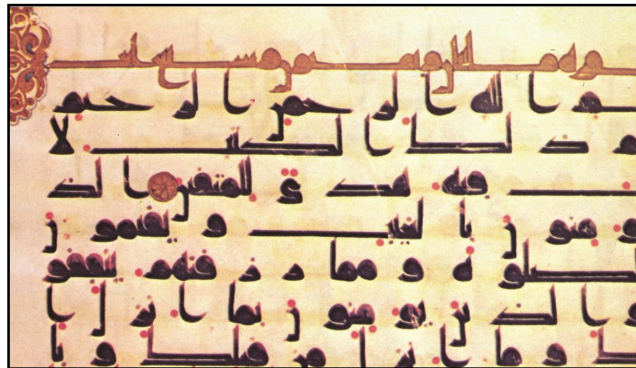 سم الله الرحمن الرحيم
م ذلك الكتب لا
ب فيه هدى للمتقين الذ
يؤمنون بالغيب و يقيمون
الصلوة و مما رزقنهم ينفقو
و الذين يؤمنون بما انزل ا
ك و ما انزل من قبلك و با